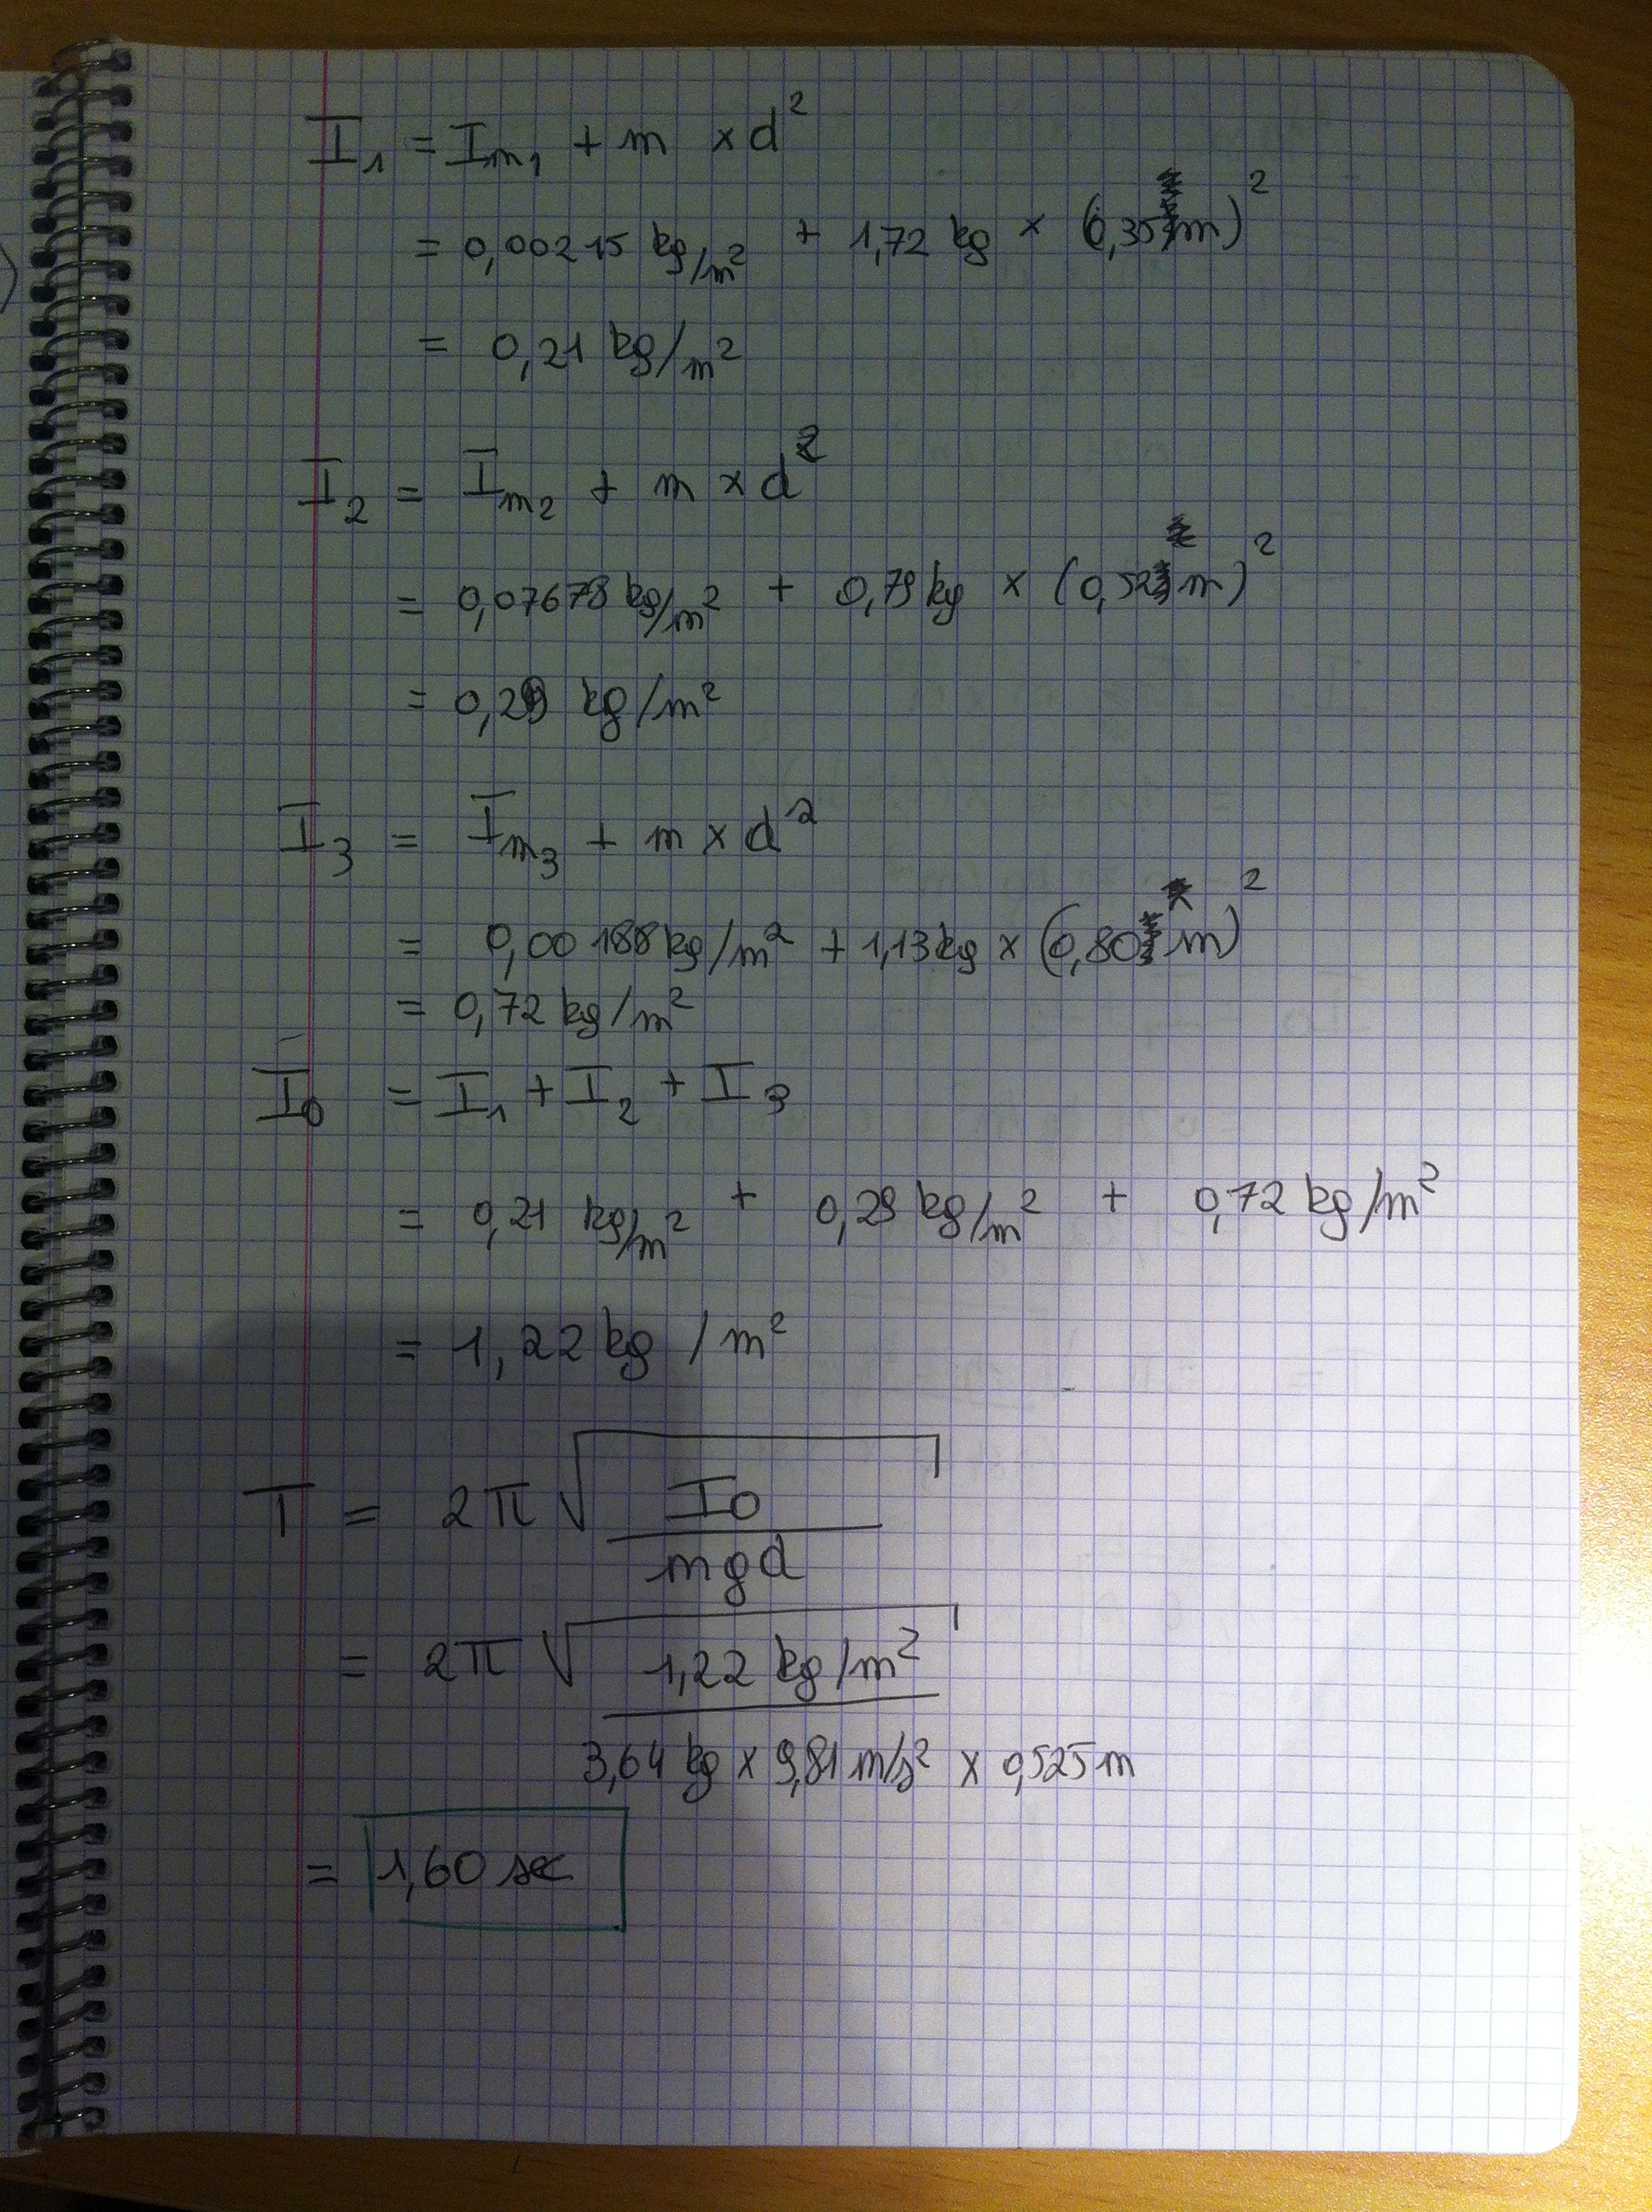 I₁ = Im₁ + m × d²
= 0,00215 kg/m² + 1,72 kg × (0,35 m)²
= 0,21 kg/m²
I₂ = Im₂ + m × d²
= 0,07678 kg/m² + 0,79 kg × (0,52 m)²
= 0,29 kg/m²
I₃ = Im₃ + m × d²
= 0,00188 kg/m² + 1,13 kg × (0,80 m)²
= 0,72 kg/m²
I₀ = I₁ + I₂ + I₃
= 0,21 kg/m² + 0,29 kg/m² + 0,72 kg/m²
= 1,22 kg/m²
T = 2π √ I₀
mgd
= 2π √ 1,22 kg/m²
3,64 kg × 9,81 m/s² × 0,525 m
= 1,60 sec